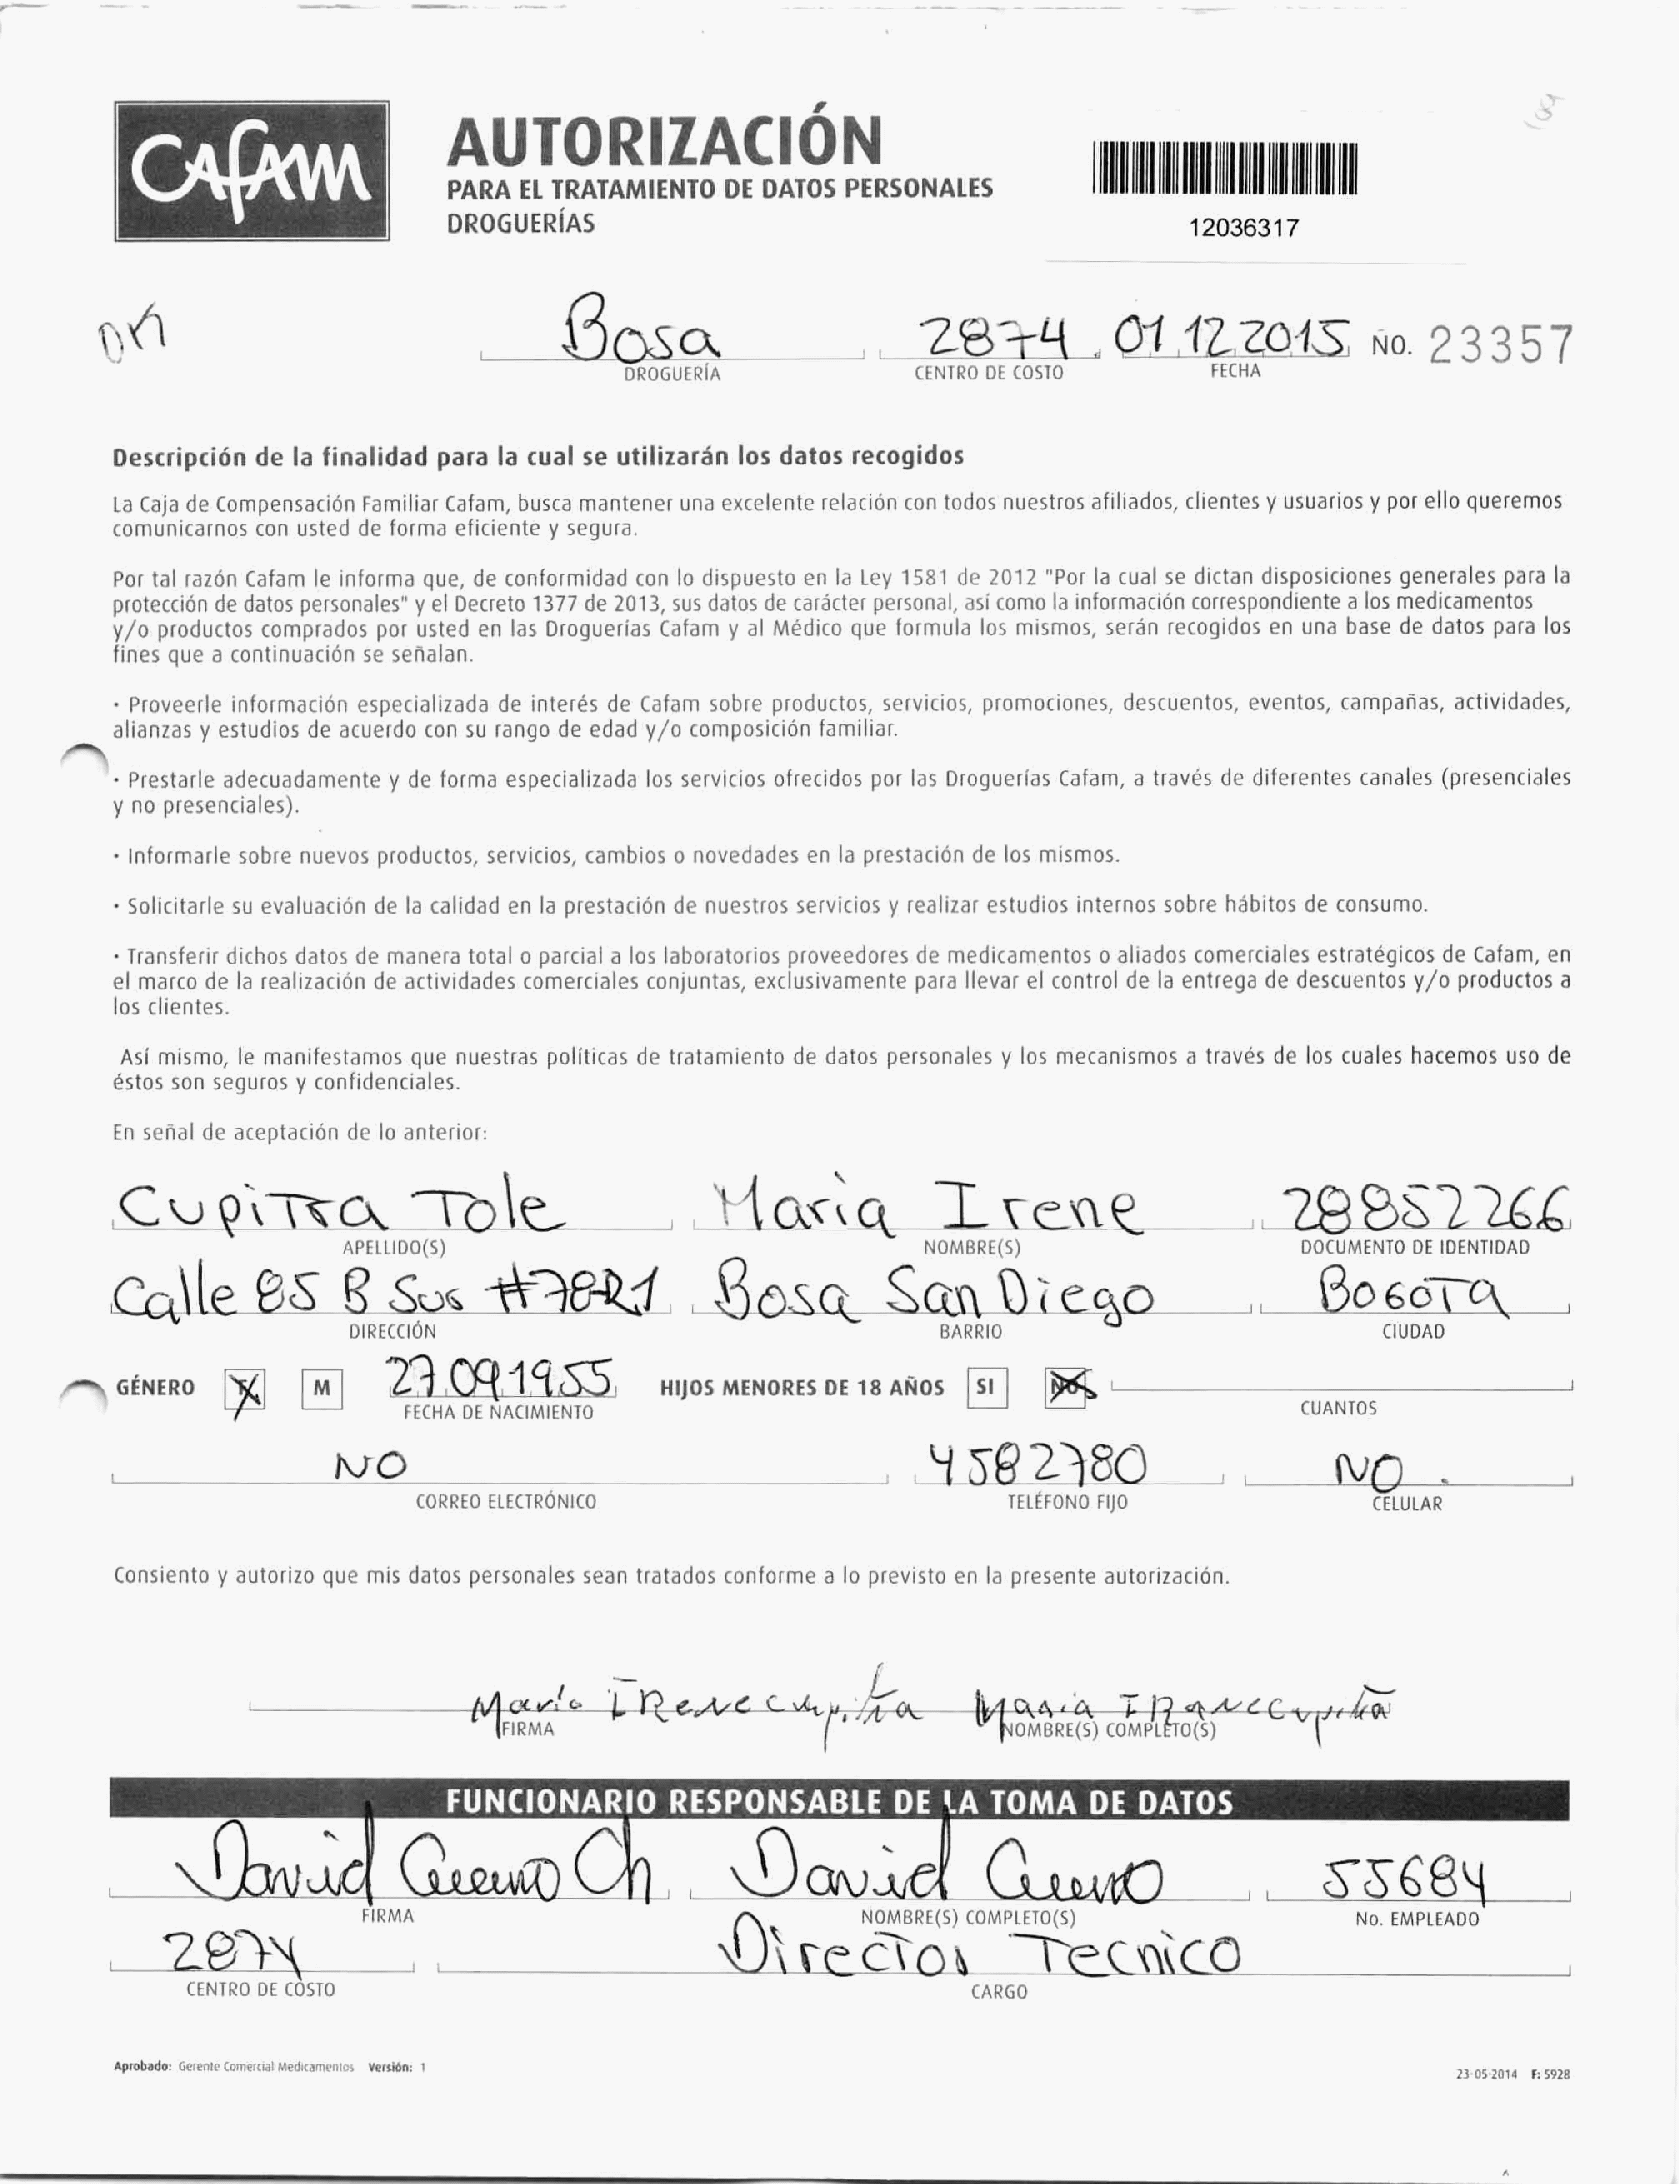 CAFAM
AUTORIZACIÓN
PARA EL TRATAMIENTO DE DATOS PERSONALES
DROGUERÍAS
12036317
Bosa 2874 01 12 2015 No. 23357
DROGUERÍA CENTRO DE COSTO FECHA
Descripción de la finalidad para la cual se utilizarán los datos recogidos
La Caja de Compensación Familiar Cafam, busca mantener una excelente relación con todos nuestros afiliados, clientes y usuarios y por ello queremos
comunicarnos con usted de forma eficiente y segura.
Por tal razón Cafam le informa que, de conformidad con lo dispuesto en la Ley 1581 de 2012 "Por la cual se dictan disposiciones generales para la
protección de datos personales" y el Decreto 1377 de 2013, sus datos de carácter personal, así como la información correspondiente a los medicamentos
y/o productos comprados por usted en las Droguerías Cafam y al Médico que formula los mismos, serán recogidos en una base de datos para los
fines que a continuación se señalan.
· Proveerle información especializada de interés de Cafam sobre productos, servicios, promociones, descuentos, eventos, campañas, actividades,
alianzas y estudios de acuerdo con su rango de edad y/o composición familiar.
· Prestarle adecuadamente y de forma especializada los servicios ofrecidos por las Droguerías Cafam, a través de diferentes canales (presenciales
y no presenciales).
· Informarle sobre nuevos productos, servicios, cambios o novedades en la prestación de los mismos.
· Solicitarle su evaluación de la calidad en la prestación de nuestros servicios y realizar estudios internos sobre hábitos de consumo.
· Transferir dichos datos de manera total o parcial a los laboratorios proveedores de medicamentos o aliados comerciales estratégicos de Cafam, en
el marco de la realización de actividades comerciales conjuntas, exclusivamente para llevar el control de la entrega de descuentos y/o productos a
los clientes.
Así mismo, le manifestamos que nuestras políticas de tratamiento de datos personales y los mecanismos a través de los cuales hacemos uso de
éstos son seguros y confidenciales.
En señal de aceptación de lo anterior:
Cupitra Tole Maria Irene 28852266
APELLIDO(S) NOMBRE(S) DOCUMENTO DE IDENTIDAD
Calle 85 B Sur #78R1 Bosa San Diego BOGOTA
DIRECCIÓN BARRIO CIUDAD
GÉNERO X M 27 09 1955 HIJOS MENORES DE 18 AÑOS SI NO
FECHA DE NACIMIENTO CUANTOS
NO 4582780 NO.
CORREO ELECTRÓNICO TELÉFONO FIJO CELULAR
Consiento y autorizo que mis datos personales sean tratados conforme a lo previsto en la presente autorización.
Maria IRene cupitra Maria IRene cupitra
FIRMA NOMBRE(S) COMPLETO(S)
FUNCIONARIO RESPONSABLE DE LA TOMA DE DATOS
David Cuervo Ch David Cuervo 55684
FIRMA NOMBRE(S) COMPLETO(S) No. EMPLEADO
2874 Director Tecnico
CENTRO DE COSTO CARGO
Aprobado: Gerente Comercial Medicamentos Versión: 1
23-05-2014 F: 5928